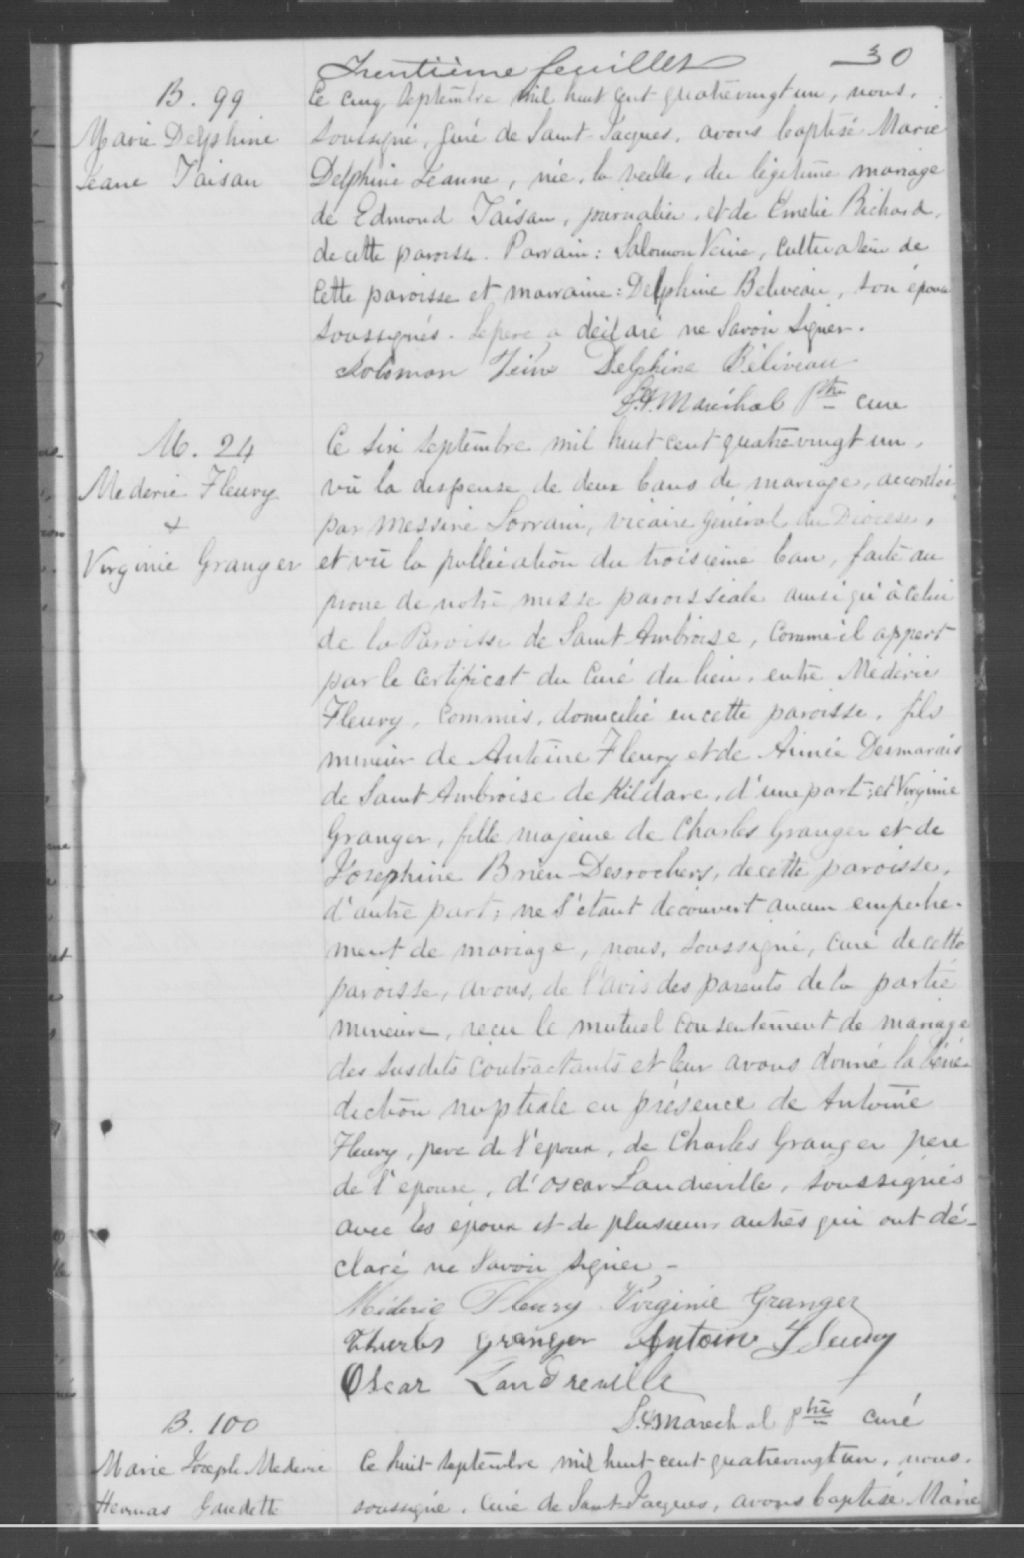 Trentième feuillet 30
B. 99
Marie Delphine
Jeane Taisan
Ce cinq septembre mil huit cent quatrevingt un, nous,
soussigné, curé de Saint Jacques, avons baptisé Marie
Delphine Jeanne, née, la veille, du légitime mariage
de Edmond Taisan, journalier, et de Emelie Richard,
de cette paroisse. Parrain: Salomon Veine, cultivateur de
cette paroisse et marraine: Delphine Beliveau, son épouse
soussignés. Le pere a déclaré ne savoir signer.
Solomon Veine Delphine Béliveau
Maréchal Ptre curé
M. 24
Mederic Fleury
+
Virginie Granger
Ce six septembre mil huit cent quatrevingt un,
vû la dispense de deux bans de mariage, accordée
par messire Lorrain, vicaire général du Diocèse,
et vû la publication du troisième ban, faite au
prone de notre messe paroissiale ainsi qu'à celui
de la Paroisse de Saint Ambroise, comme il appert
par le certificat du curé du lieu, entre Médéric
Fleury, commis, domicilié en cette paroisse, fils
mineur de Antoine Fleury et de Aimée Desmarais
de Saint Ambroise de Kildare, d'une part; et Virginie
Granger, fille majeure de Charles Granger et de
Josephine Brien-Desrochers, de cette paroisse,
d'autre part; ne s'étant découvert aucun empêche-
ment de mariage, nous, soussigné, curé de cette
paroisse, avons, de l'avis des parents de la partie
mineure, reçu le mutuel consentement de mariage
des susdits contractants et leur avons donné la béné-
diction nuptiale en présence de Antoine
Fleury, pere de l'époux, de Charles Granger pere
de l'épouse, d'Oscar Landreville, soussignés
avec les époux et de plusieurs autres qui ont dé-
claré ne savoir signer -
Médéric Fleury Virginie Granger
Charles Granger Antoine Fleury
Oscar Landreville
Maréchal ptre curé
B. 100
Marie Joseph Mederic
Hermas Gaudette
Ce huit septembre mil huit cent quatrevingt un, nous,
soussigné, curé de Saint-Jacques, avons baptisé Marie